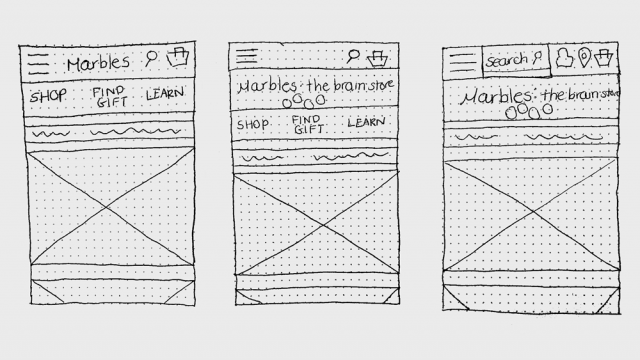 Marbles
SHOP FIND GIFT LEARN
Marbles: the brain store
SHOP FIND GIFT LEARN
Search
Marbles: the brain store